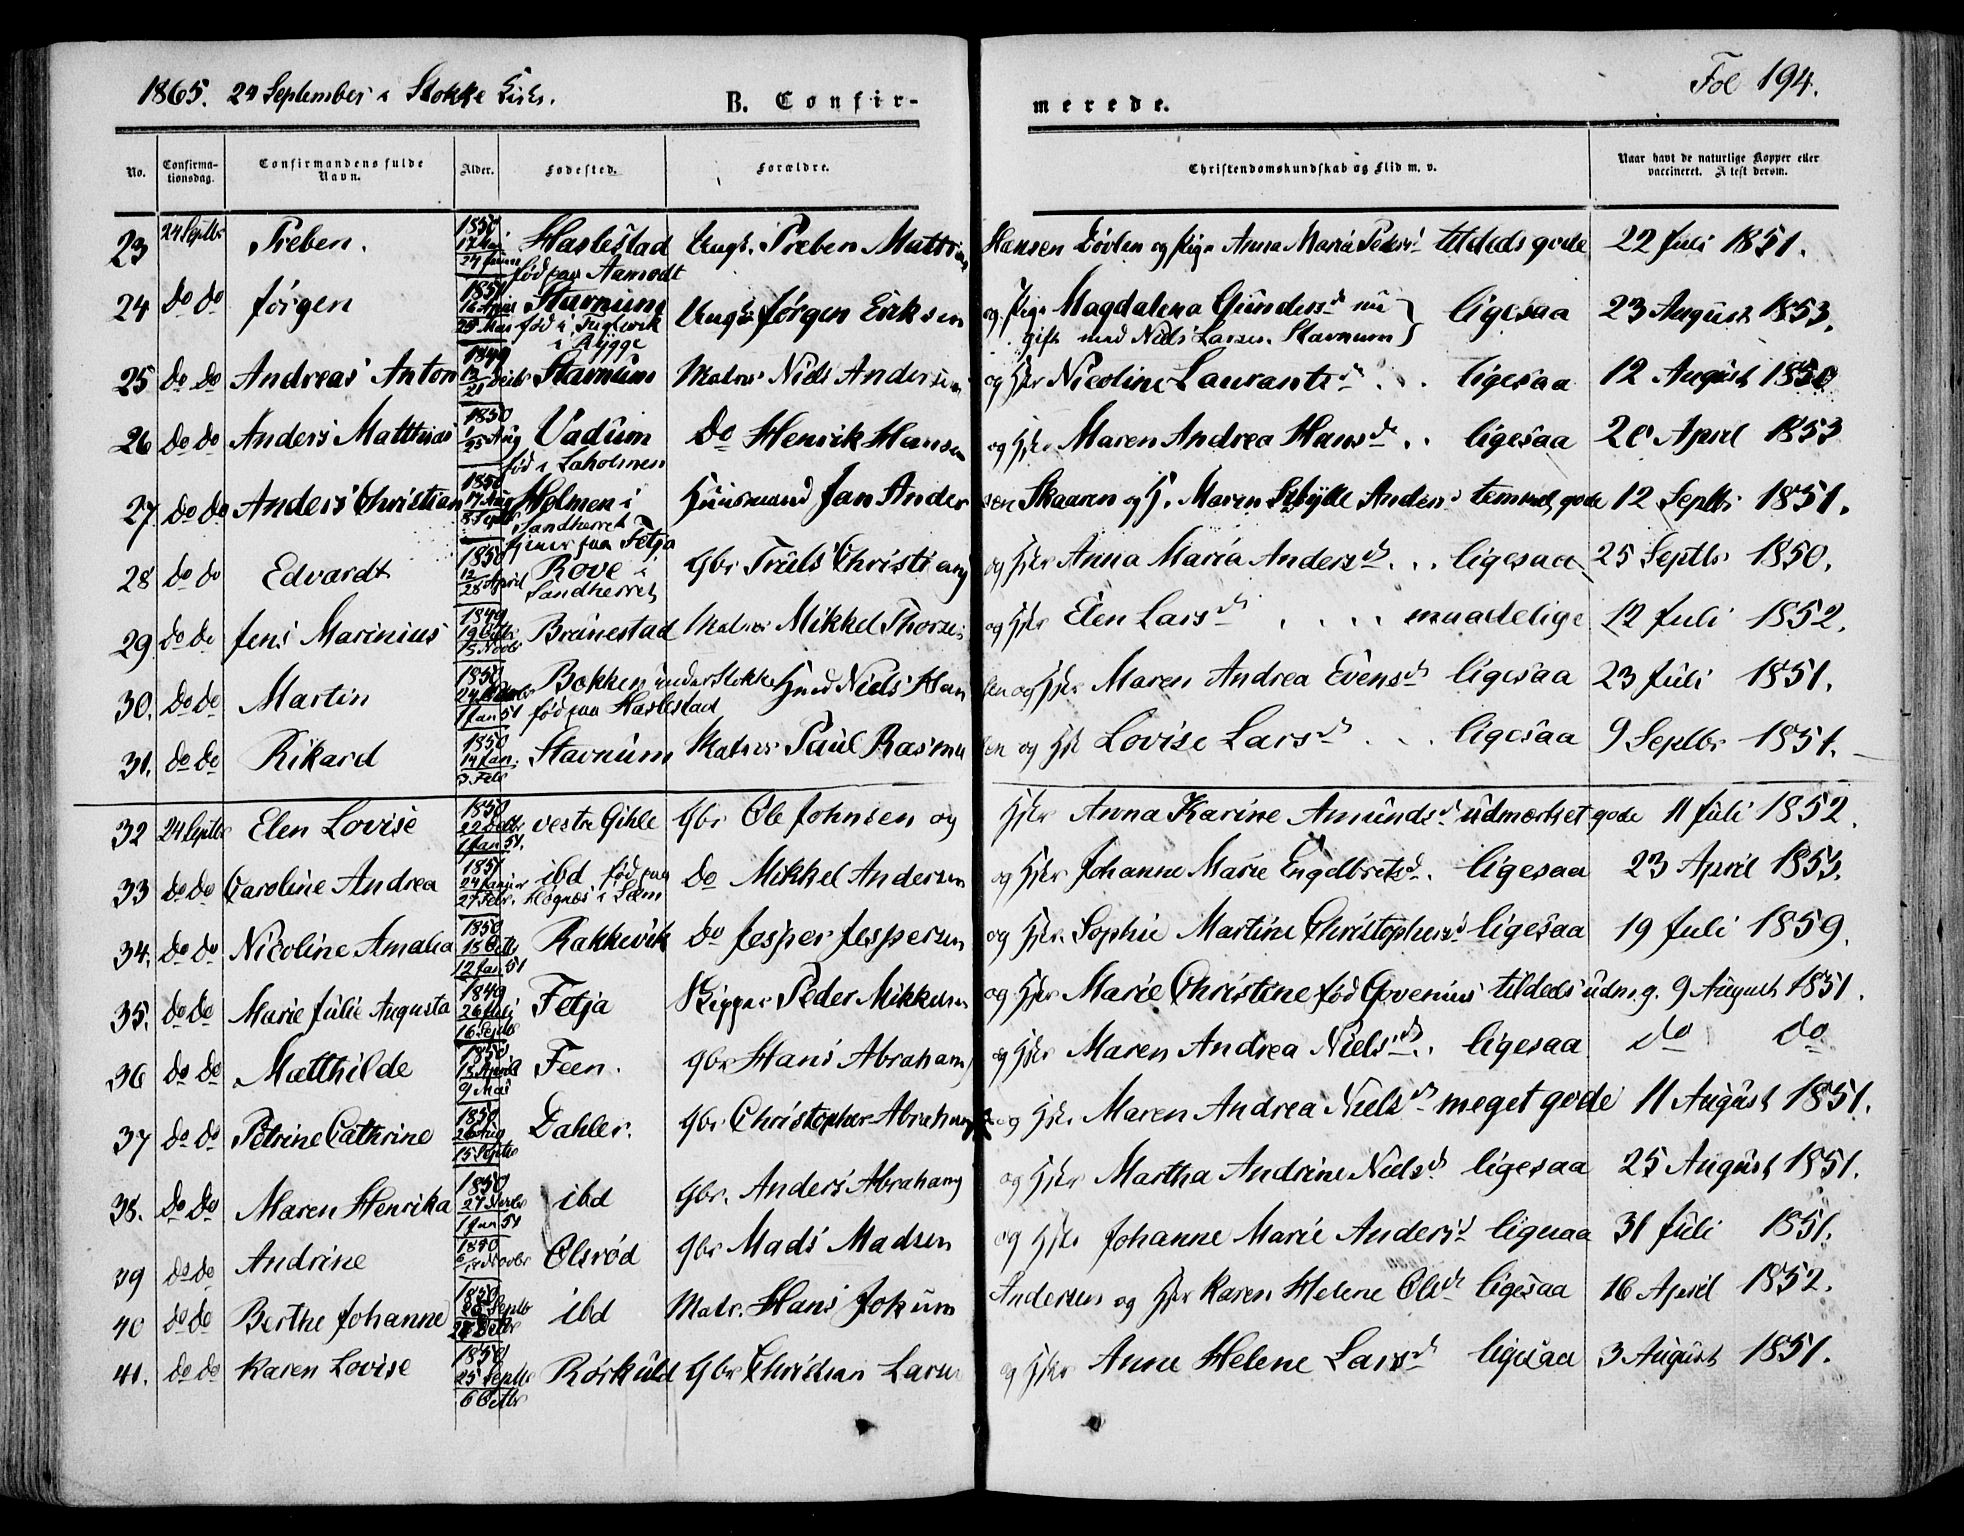 1865. 24 September i Stokke Kirke.
B. Confir-
merede.
Fol 194.
No.
Confirma-tionsdag.
Confirmandens fulde Navn.
Alder.
Fødested.
Forældre.
Christendomskundskab og Flid m. v.
Naar havt de naturlige Kopper eller vaccineret. Attest derom.
23 24 Septbr Preben. 1850 17 Mai 24 Haslestad Ungk. Preben Mathias Hansen og Pige Anna Maria Peders tildels gode 22 Juli 1851.
født paa Aamodt
24 do do Jørgen 1851 Stavnum Ungk. Jørgen Eriksen og Pige Magdalena Gundersd nu ligesaa 23 August 1853.
født i Fuglevik i Rygge
gift med Niels Larsen Stavnum
25 do do Andreas Anton 1849 Stavnum Matros Niels Andersen og Hustr Nicoline Laurantsd . . ligesaa 12 August 1850
26 do do Anders Matthias 1850 1/25 Aug Vadum do Henrik Hansen og Hjer Maren Andrea Hansd . . ligesaa 20 April 1853
født i Laholmen
27 do do Anders Christian 1850 17 Aug 8 Septb Holmen i Sandherret Huusmand Jan Andersen Skaaren og H. Maren Sibylle Anders temmel. gode 12 Septbr 1851.
tjener paa Fetja
28 do do Edvardt 1850 12/28 April Rove i Sandherret Gbr Truls Christians og Hjer Anna Maria Andersd . . . ligesaa 25 Septbr 1850.
29 do do Jens Marinius 1849 19 Octbr 15 Novbr Brunestad Matros Mikkel Thorsen og Hjer Elen Larsd . . . . maadelige 12 Juli 1852.
30. do do Martin 1850 1 Jan 51 Bokken under Stokke Huusmd Niels Hansen og Hjer Maren Andrea Evensd ligesaa 23 Juli 1851.
født paa Haslestad
31. do do Rikard 1850 14 Jan. 3 Febr Stavnum Matros Paul Rasmussen og Hjr Lovise Larsd . . . ligesaa 9 Septbr 1851.
32 24 Septbr Elen Lovise 1850 1 Jan 51. vestre Gihle Gbr Ole Johnsen og Hjer Anna Karine Amundsd udmærket gode 11 Juli 1852.
33 do do Caroline Andrea 1851 24 Januar 27 Febr. ibd født paa Høgnæs i Sæm do Mikkel Andersen og Hjer Johanne Marie Engelbretsd. ligesaa 23 April 1853.
34. do do Nicoline Amalia 1850 15 Octbr 12 Jan 51 Rakkevik do Jesper Jespersen og Hjer. Sophie Martine Christophersd ligesaa 19 Juli 1859.
35. do do Marie Julie Augusta 1849 26 Juli 16 Septbr Fetja Skipper Peder Mikkelsen og Hjer Marie Christine født Govenius tildels udm. g. 9 August 1851.
36 do do Matthilde 1850 15 April 9 Mai Feen. Gbr Hans Abrahams og Hjer Maren Andrea Nielsd . . ligesaa do do
37 do do Petrine Cathrine 1850 26 Aug 15 Septbr Dahler. Gbr Christopher Abrahams og Hjer Maren Andrea Nielsd meget gode 11 August 1851.
38. do do Maren Henrika 1850 1 Jan 51 ibd Gbr. Anders Abrahams og Hjer Martha Andrine Nielsd. ligesaa 25 August 1851.
39 do do Andrine 1850 Olsrød Gbr Mads Madsen og Hjer Johanne Marie Andersd ligesaa 31 Juli 1851.
40 do do Berthe Johanne 1850 26 Septbr 27 Octbr ibd Matr. Hans Jokum Andersen og Hjer Karen Helene Olsd ligesaa 16 April 1852.
41. do do Karen Lovise 1850 25 Septbr 6 Octbr Rørkuld Gbr Christian Larsen og Hjer Anne Helene Larsd ligesaa 3 August 1851.